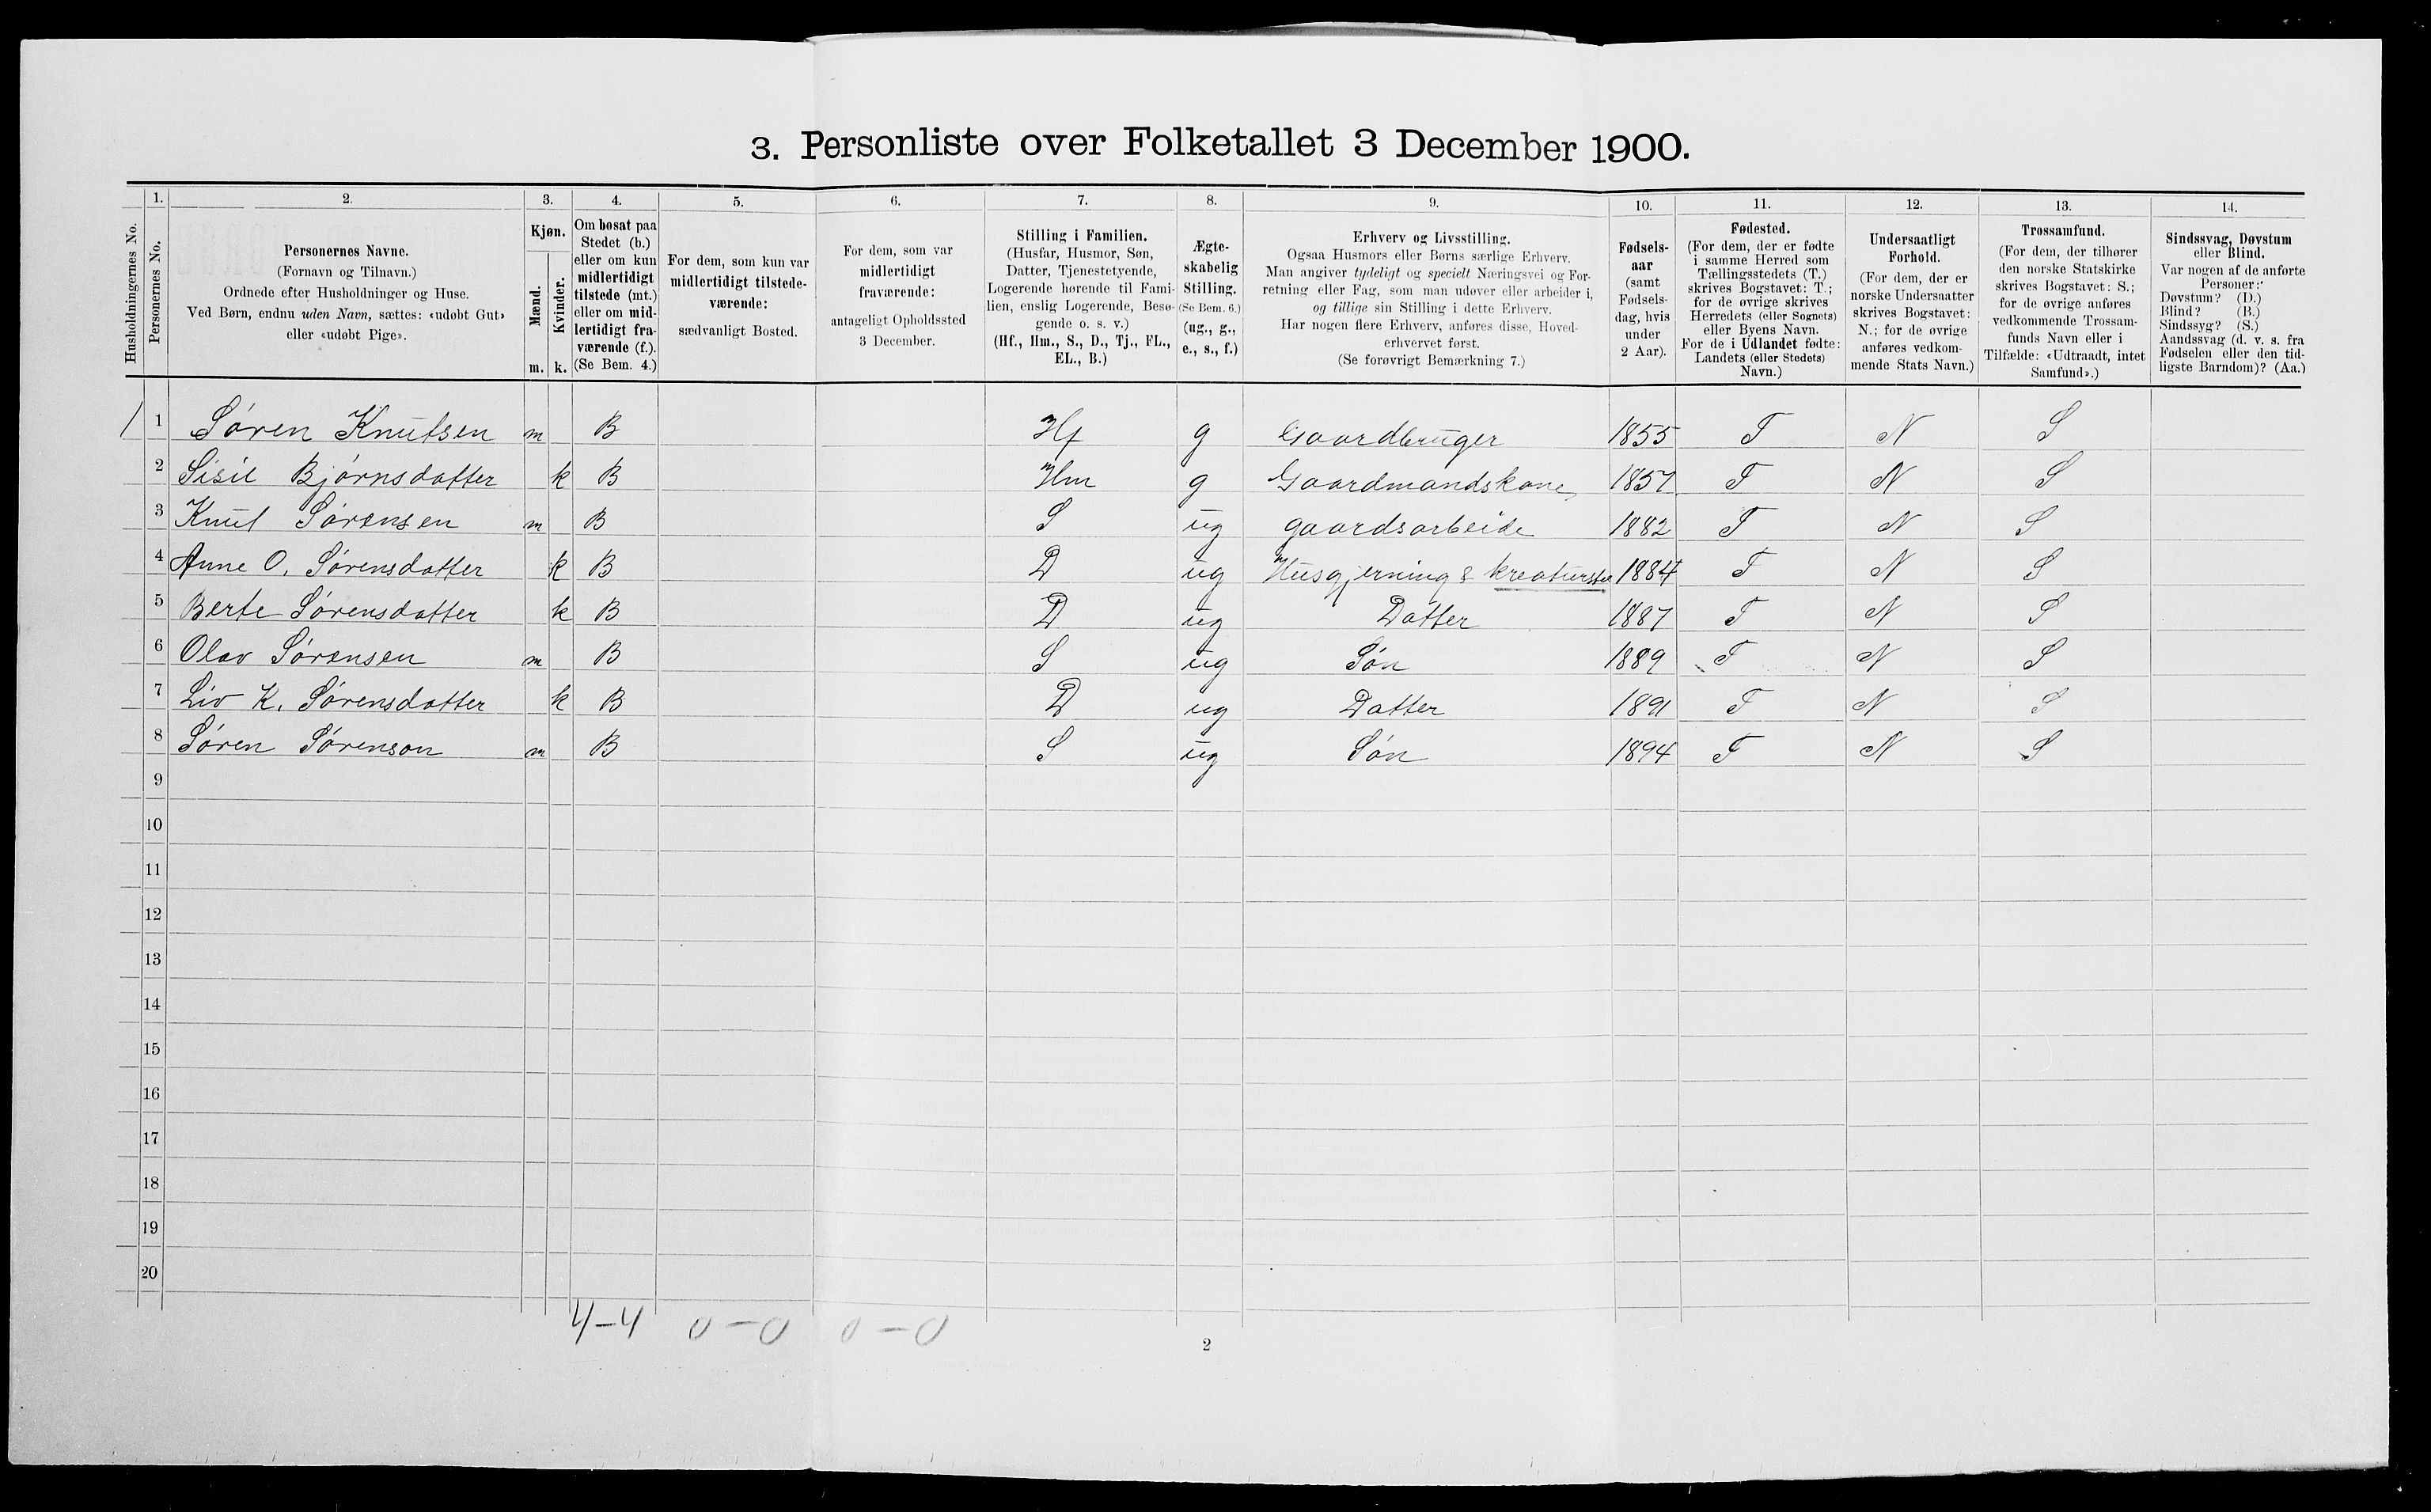 3. Personliste over Folketallet 3 December 1900.
1. 2. 3. 4. 5. 6. 7. 8. 9. 10. 11. 12. 13. 14.
Husholdningernes No.
Personernes No.
Personernes Navne.
(Fornavn og Tilnavn.)
Ordnede efter Husholdninger og Huse.
Ved Børn, endnu uden Navn, sættes: «udøbt Gut»
eller «udøbt Pige».
Kjøn.
Mænd.
Kvinder.
m. k.
Om bosat paa
Stedet (b.)
eller om kun
midlertidigt
tilstede (mt.)
eller om mid-
lertidigt fra-
værende (f.).
(Se Bem. 4.)
For dem, som kun var
midlertidigt tilstede-
værende:
sædvanligt Bosted.
For dem, som var
midlertidigt
fraværende:
antageligt Opholdssted
3 December.
Stilling i Familien.
(Husfar, Husmor, Søn,
Datter, Tjenestetyende,
Logerende hørende til Fami-
lien, enslig Logerende, Besø-
gende o. s. v.)
(Hf., Hm., S., D., Tj., FL.,
EL., B.)
Ægte-
skabelig
Stilling.
(Se Bem. 6.)
(ug., g.,
e., s., f.)
Erhverv og Livsstilling.
Ogsaa Husmors eller Børns særlige Erhverv.
Man angiver tydeligt og specielt Næringsvei og For-
retning eller Fag, som man udøver eller arbeider i,
og tillige sin Stilling i dette Erhverv.
Har nogen flere Erhverv, anføres disse, Hoved-
erhvervet først.
(Se forøvrigt Bemærkning 7.)
Fødsels-
aar
(samt
Fødsels-
dag, hvis
under
2 Aar).
Fødested.
(For dem, der er fødte
i samme Herred som
Tællingsstedets (T.)
skrives Bogstavet: T.;
for de øvrige skrives
Herredets (eller Sognets)
eller Byens Navn.
For de i Udlandet fødte:
Landets (eller Stedets)
Navn.)
Undersaatligt
Forhold.
(For dem, der er
norske Undersaatter
skrives Bogstavet:
N.; for de øvrige
anføres vedkom-
mende Stats Navn.)
Trossamfund.
(For dem, der tilhører
den norske Statskirke
skrives Bogstavet: S.;
for de øvrige anføres
vedkommende Trossam-
funds Navn eller i
Tilfælde: «Udtraadt, intet
Samfund».)
Sindssvag, Døvstum
eller Blind.
Var nogen af de anførte
Personer:
Døvstum? (D.)
Blind? (B.)
Sindssyg? (S.)
Aandssvag (d. v. s. fra
Fødselen eller den tid-
ligste Barndom)? (Aa.)
1 1 Søren Knutsen m B Hf g Gaardbruger 1855 T N S
2 Sisil Bjørnsdatter k B Hm g Gaardmandskone, 1857 T N S
3 Knut Sørensen m B S ug gaardsarbeide 1882 T N S
4 Anne O. Sørensdatter k B D ug Husgjerning & kreaturstel 1884 T N S
5 Berte Sørensdatter k B D ug Datter 1887 T N S
6 Olav Sørensen m B S ug Søn 1889 T N S
7 Liv K. Sørensdatter k B D ug Datter 1891 T N S
8 Søren Sørenson m B S ug Søn 1894 T N S
9
10
11
12
13
14
15
16
17
18
19
20
4-4 0-0 0-0
2